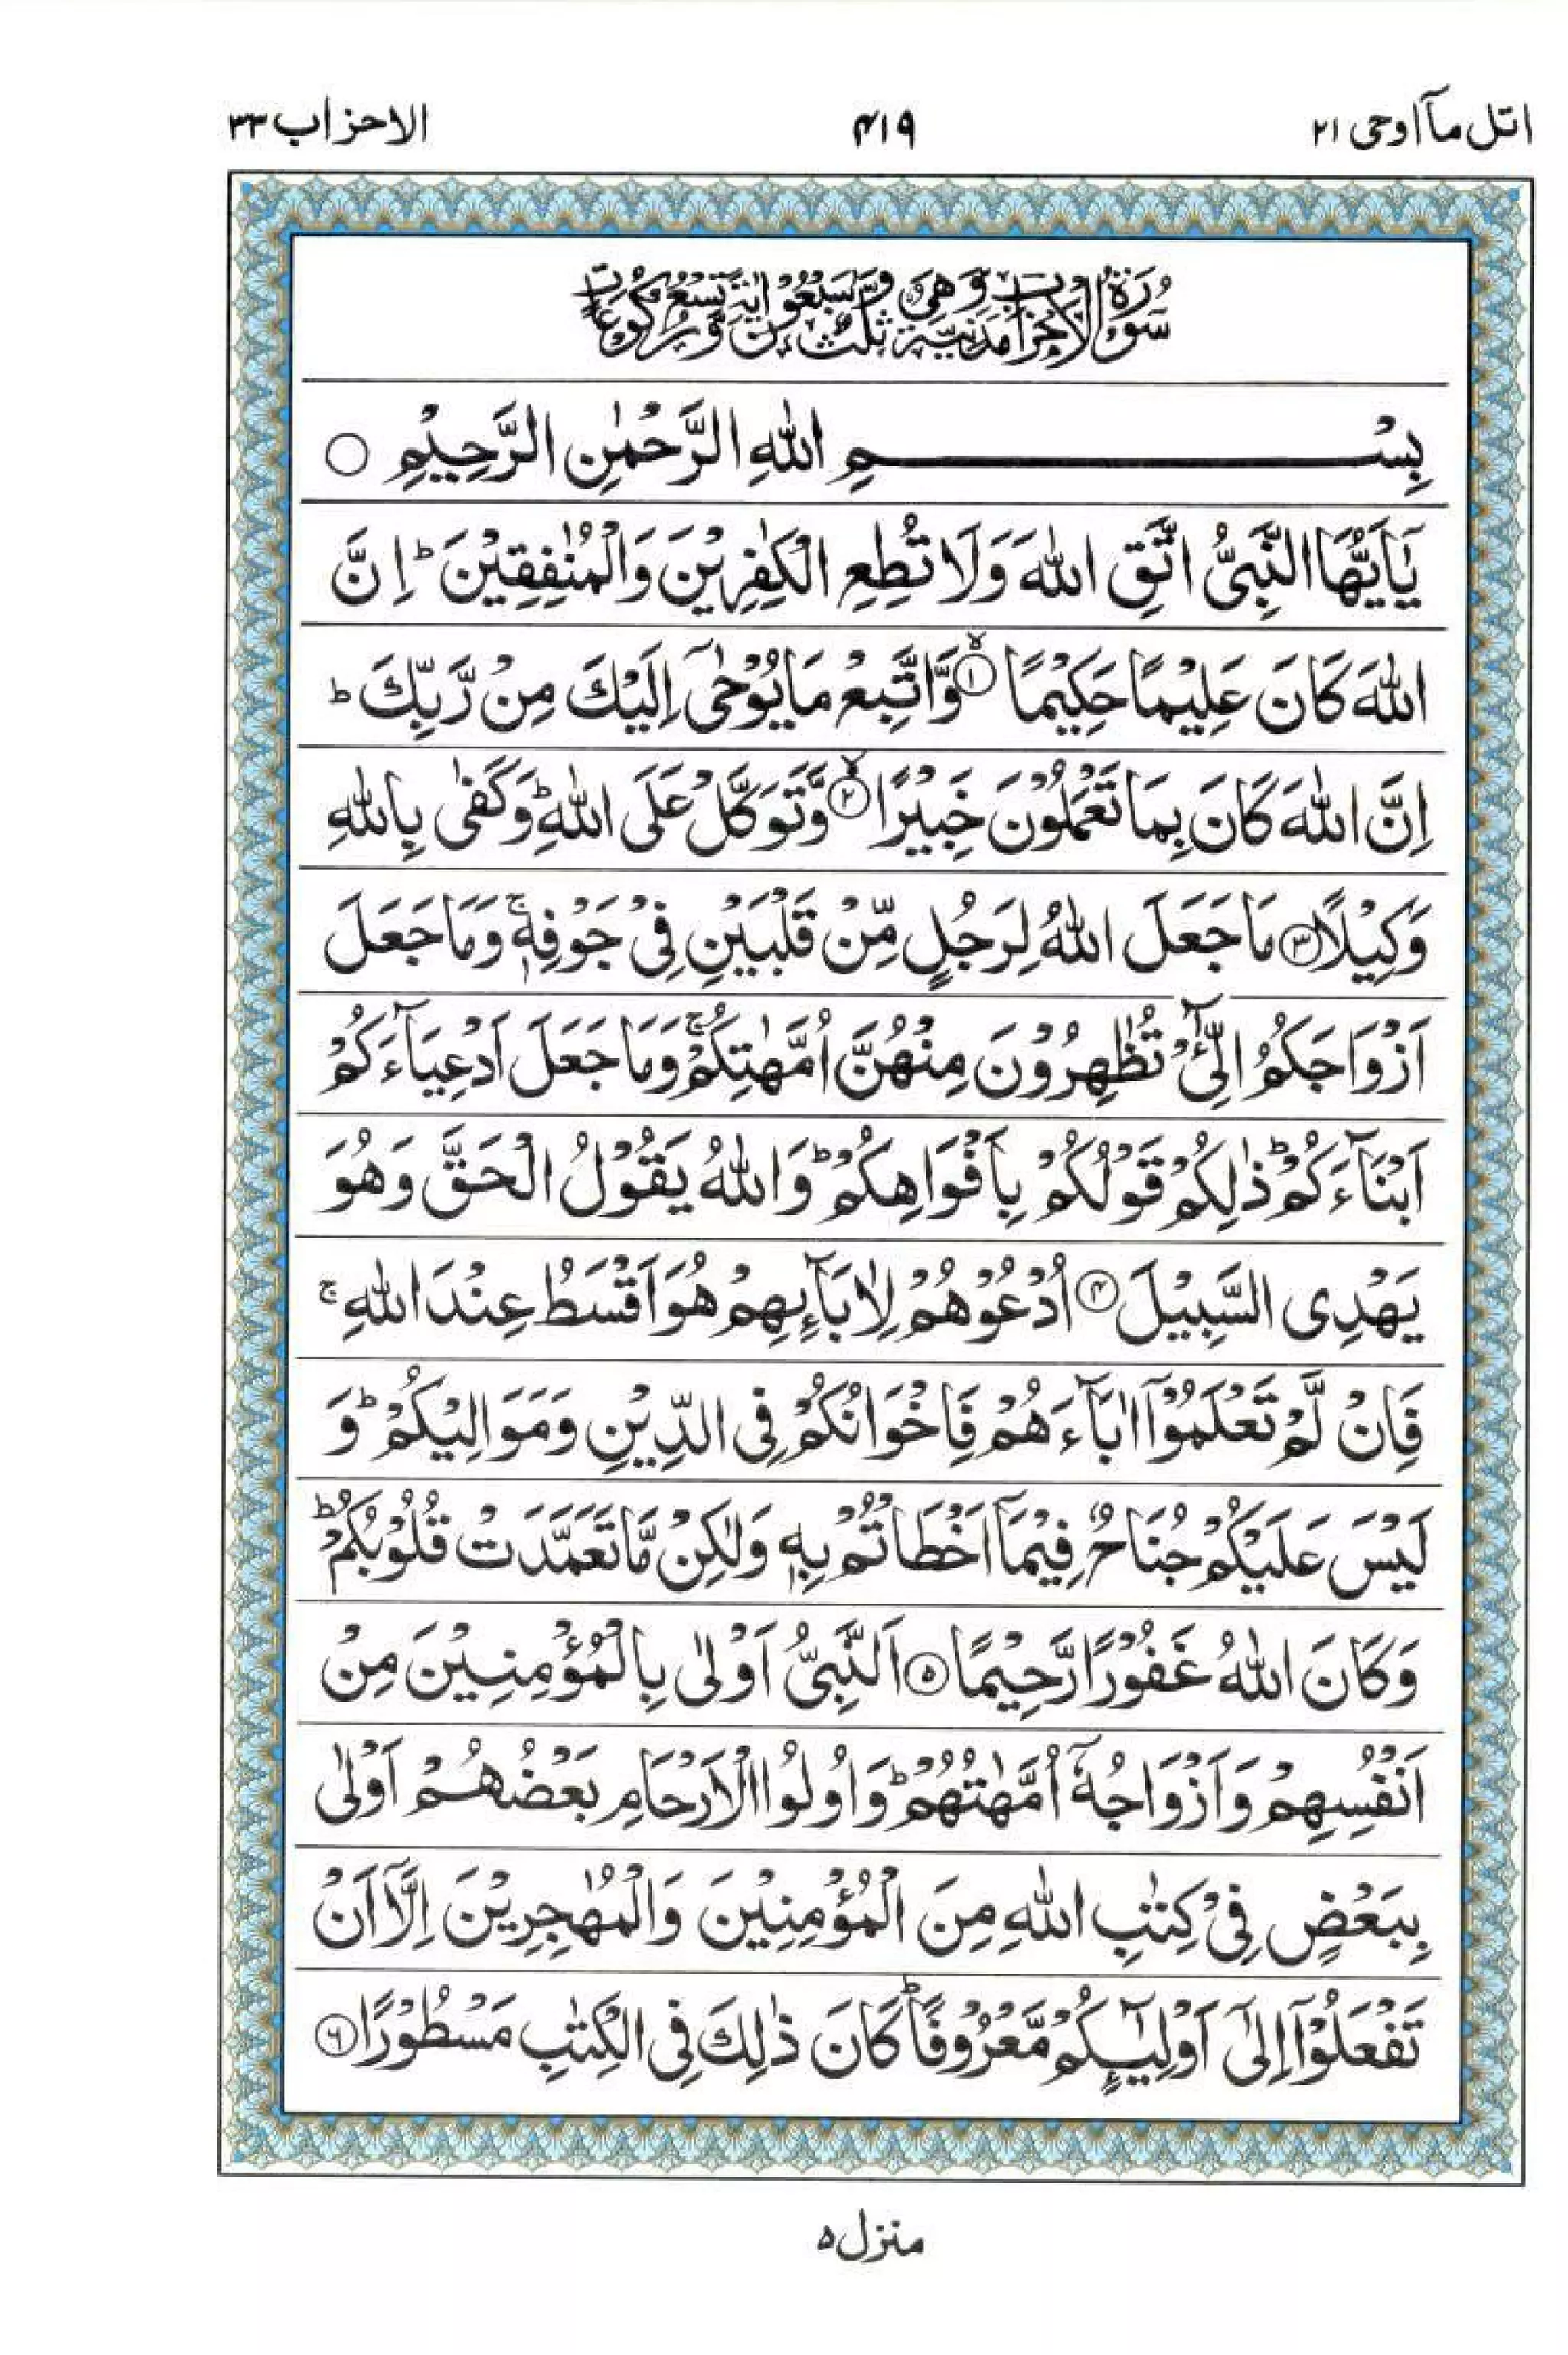 اتل ماۤ اوحی ۲۱ ۴۱۹ الاحزاب ۳۳
سُوْرَةُ الْاَحْزَابِ مَدَنِيَّةٌ وَّهِيَ ثَلٰثٌ وَّسَبْعُوْنَ اٰيَةً وَّتِسْعُ رُكُوْعَاتٍ
بِسْــــــــــــمِ اللّٰهِ الرَّحْمٰنِ الرَّحِيْمِ ○
يٰۤاَيُّهَا النَّبِىُّ اتَّقِ اللّٰهَ وَلَا تُطِعِ الْكٰفِرِيْنَ وَالْمُنٰفِقِيْنَ ؕ اِنَّ
اللّٰهَ كَانَ عَلِيْمًا حَكِيْمًا ۙ‏﴿۱﴾ وَّاتَّبِعْ مَا يُوْحٰىۤ اِلَيْكَ مِنْ رَّبِّكَ ؕ
اِنَّ اللّٰهَ كَانَ بِمَا تَعْمَلُوْنَ خَبِيْرًا ۙ‏﴿۲﴾ وَّتَوَكَّلْ عَلَى اللّٰهِ ؕ وَكَفٰى بِاللّٰهِ
وَكِيْلًا ﴿۳﴾ مَا جَعَلَ اللّٰهُ لِرَجُلٍ مِّنْ قَلْبَيْنِ فِىْ جَوْفِهٖ ۚ وَمَا جَعَلَ
اَزْوَاجَكُمُ الّٰٓـئِْ تُظٰهِرُوْنَ مِنْهُنَّ اُمَّهٰتِكُمْ ۚ وَمَا جَعَلَ اَدْعِيَآءَكُمْ
اَبْنَآءَكُمْ ؕ ذٰلِكُمْ قَوْلُكُمْ بِاَفْوَاهِكُمْ ؕ وَاللّٰهُ يَقُوْلُ الْحَقَّ وَهُوَ
يَهْدِى السَّبِيْلَ ﴿۴﴾ اُدْعُوْهُمْ لِاٰبَآئِهِمْ هُوَ اَقْسَطُ عِنْدَ اللّٰهِ ۚ
فَاِنْ لَّمْ تَعْلَمُوْۤا اٰبَآءَهُمْ فَاِخْوَانُكُمْ فِى الدِّيْنِ وَمَوَالِيْكُمْ ؕ وَ
لَيْسَ عَلَيْكُمْ جُنَاحٌ فِيْمَاۤ اَخْطَاْتُمْ بِهٖ وَلٰكِنْ مَّا تَعَمَّدَتْ قُلُوْبُكُمْ ؕ
وَكَانَ اللّٰهُ غَفُوْرًا رَّحِيْمًا ﴿۵﴾ اَلنَّبِىُّ اَوْلٰى بِالْمُؤْمِنِيْنَ مِنْ
اَنْفُسِهِمْ وَاَزْوَاجُهٗۤ اُمَّهٰتُهُمْ ؕ وَاُولُوا الْاَرْحَامِ بَعْضُهُمْ اَوْلٰى
بِبَعْضٍ فِىْ كِتٰبِ اللّٰهِ مِنَ الْمُؤْمِنِيْنَ وَالْمُهٰجِرِيْنَ اِلَّاۤ اَنْ
تَفْعَلُوْۤا اِلٰٓى اَوْلِيٰٓـئِكُمْ مَّعْرُوْفًا ؕ كَانَ ذٰلِكَ فِى الْكِتٰبِ مَسْطُوْرًا ﴿۶﴾
منزل ۵